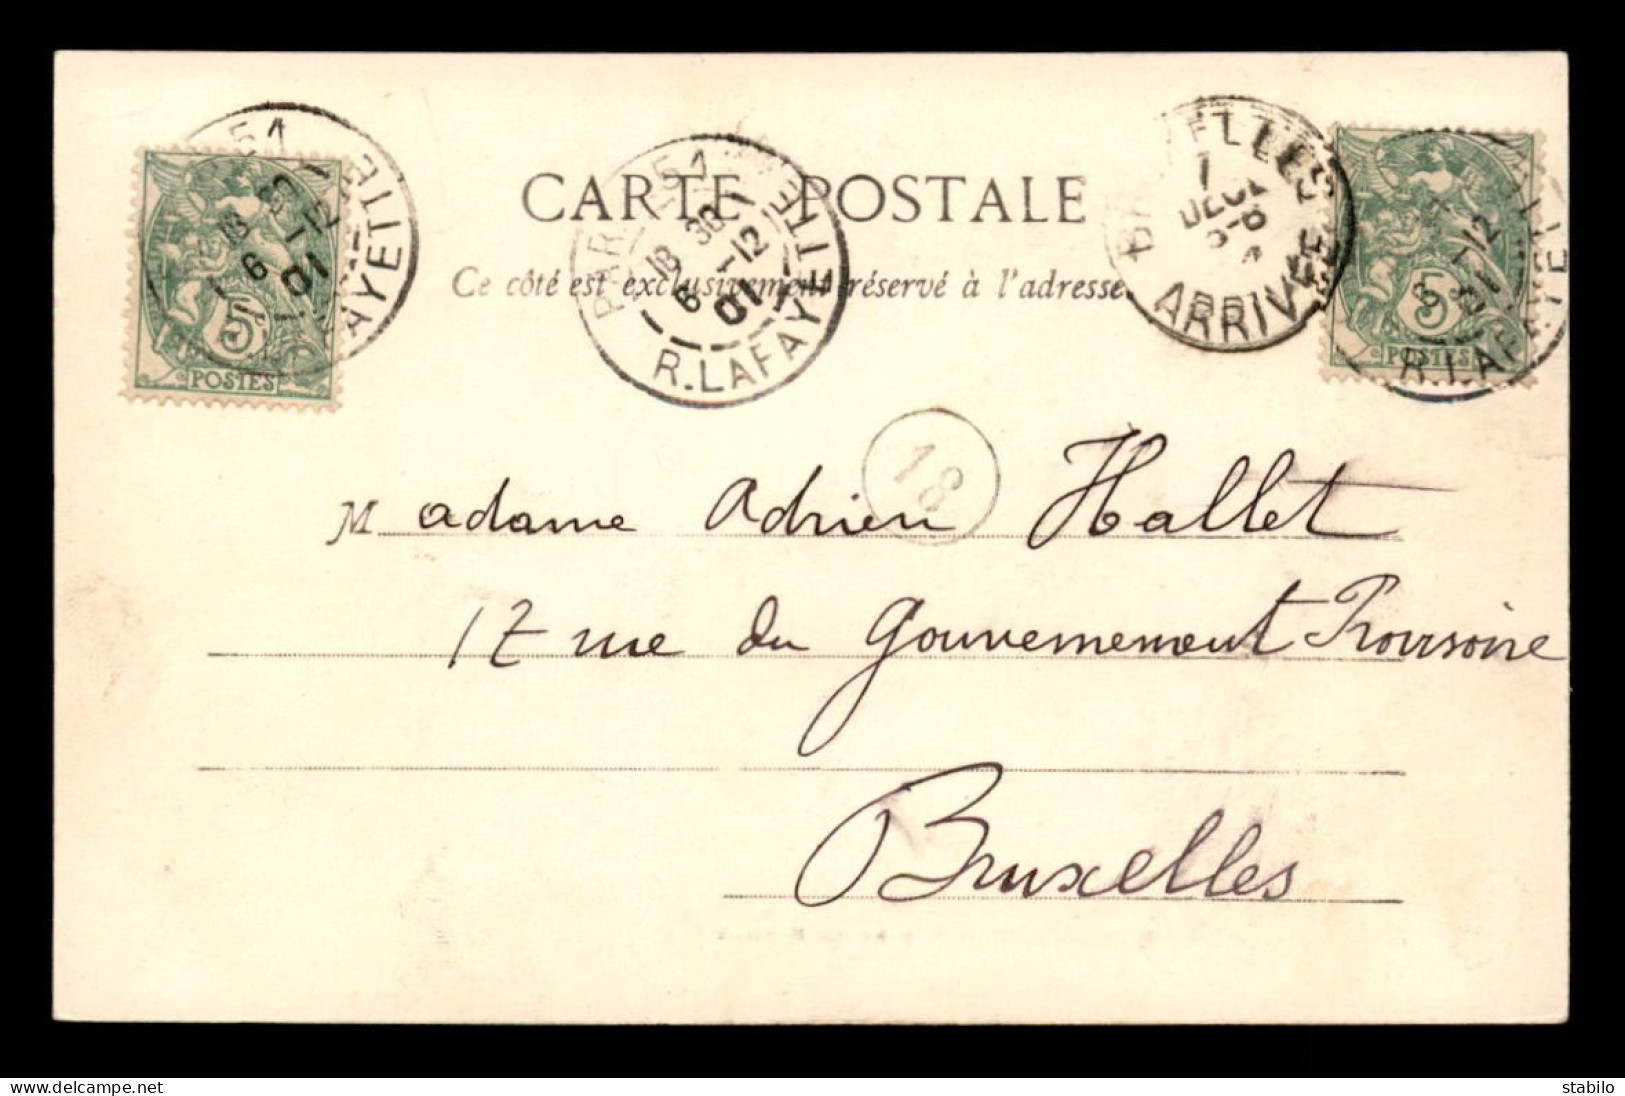 CARTE POSTALE
Ce côté est exclusivement réservé à l'adresse.
PARIS 51
18 30
6 -12
01
R. LAFAYETTE
BRUXELLES
1
DECE
ARRIVÉE
5
POSTES
5
POSTES
18
Madame Adrien Hallet
17 rue du Gouvernement Provisoire
Bruxelles
delcampe.net
stabilo